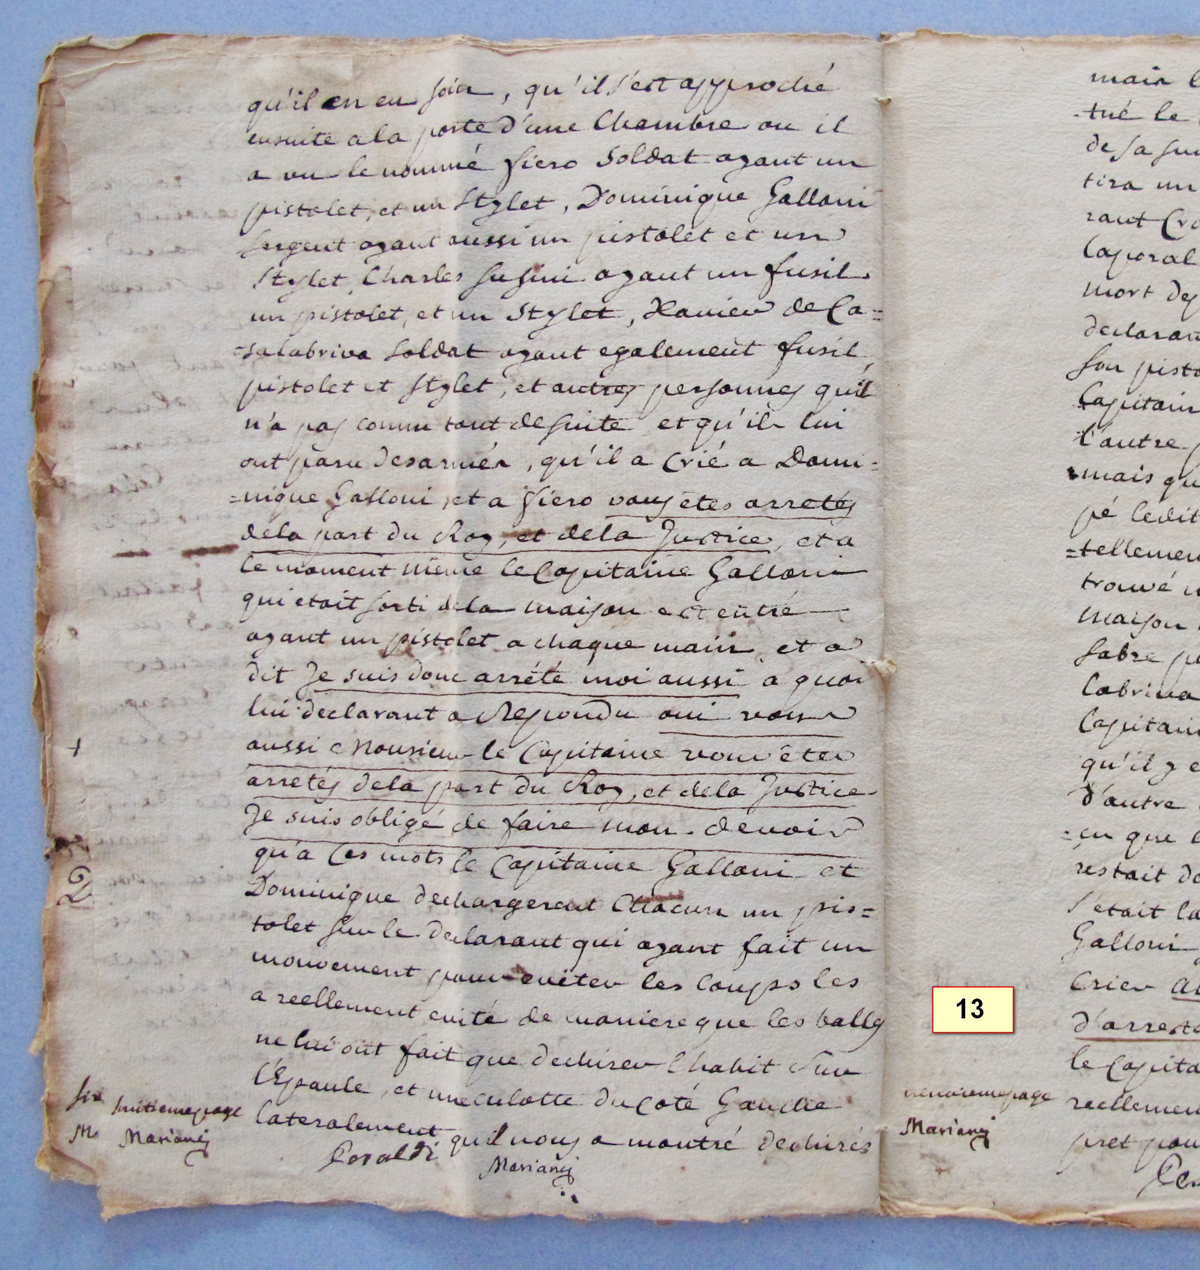 qu'il en eu soin, qu'il s'est approché
ensuite a la porte d'une Chambre ou il
a vu le nommé fiero Soldat ayant un
pistolet, et un Stylet, Dominique Galloni
Sergent ayant aussi un pistolet et un
Stylet, Charles Susini ayant un fusil
un pistolet, et un Stylet, Xavier de Ca=
=salabriva Soldat ayant egalement fusil
pistolet et Stylet, et autres personnes qu'il
n'a pas connu tout de suite et qu'ils lui
ont paru desarmés, qu'il a Crié a Domi=
=nique Galloni, et a fiero vous etes arretés
dela part du Roy, et dela Justice, et a
le moment même le Capitaine Galloni
qui etoit sorti de la maison est entré
ayant un pistolet a chaque main, et a
dit Je suis donc arrété moi aussi a quoi
lui declarant a Repondu oui vous
aussi Monsieur le Capitaine vous étes
arretés dela part du Roy, et dela Justice
Je suis obligé de faire mon devoir
qu'a Ces mots le Capitaine Galloni et
Dominique dechargerent Chacun un pis=
tolet sur le declarant qui ayant fait un
mouvement pour eviter les Coups les
a reellement evité de maniere que les balles
ne lui ont fait que dechirer l'habit sur
l'Epaule, et une culotte du Coté Gauche
lateralement qu'il nous a montré dechirés
Peraldi
Mariani
+
2
huitieme page
Mariani
13
neuvieme page
Mariani
main
=tué le
de sa
tira un
rant
Caporal
mort
declaran
son pisto
Capitain
l'autre
=mais qu
pé ledit
=tellemen
trouvé
maison
Sabre
labriva
Capitain
qu'il y
d'autre
=çu que
restait de
s'etait la
Galloni
Crier
d'arresta
le Capita
reellemen
pret pou